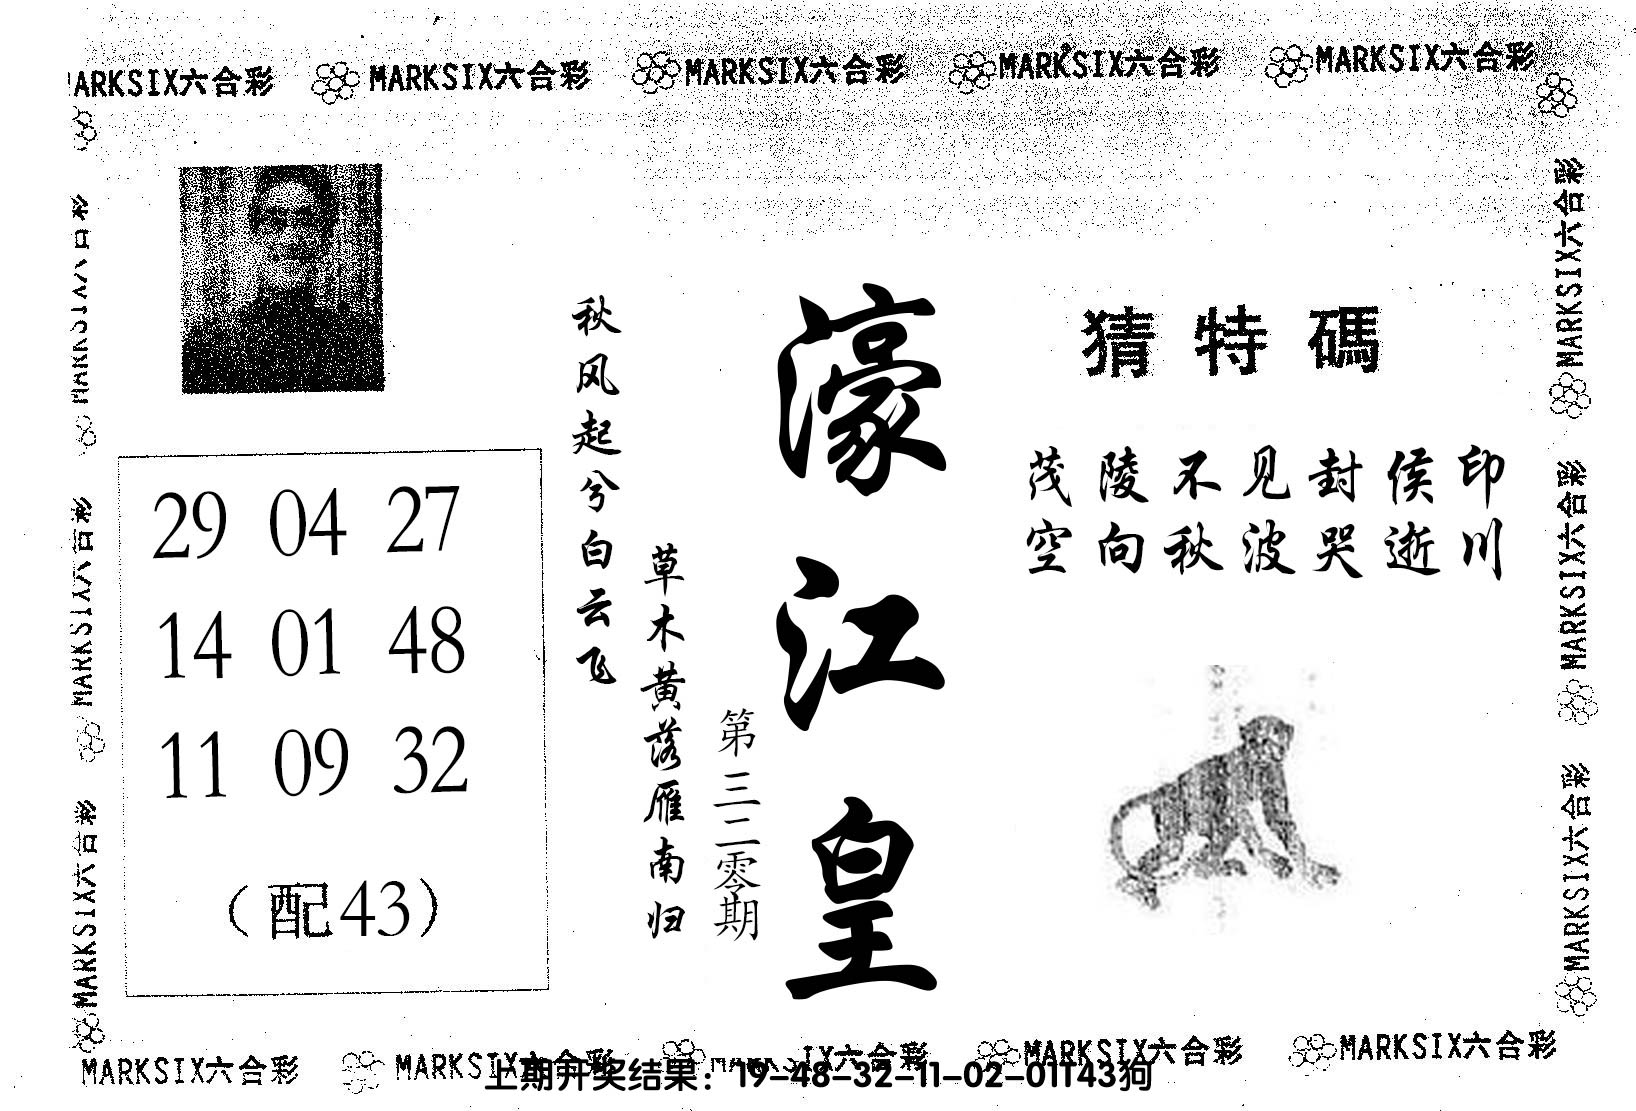 MARKSIX六合彩 MARKSIX六合彩 MARKSIX六合彩 MARKSIX六合彩 MARKSIX六合彩
猜特碼
茂陵不见封侯印
空向秋波哭逝川
濠江皇
第三二零期
秋风起兮白云飞
草木黄落雁南归
29 04 27
14 01 48
11 09 32
（配43）
MARKSIX六合彩
MARKSIX六合彩
MARKSIX六合彩
MARKSIX六合彩
MARKSIX六合彩
MARKSIX六合彩
MARKSIX六合彩 MARKSIX六合彩 MARKSIX六合彩 MARKSIX六合彩 MARKSIX六合彩
上期开奖结果：19-48-32-11-02-01T43狗